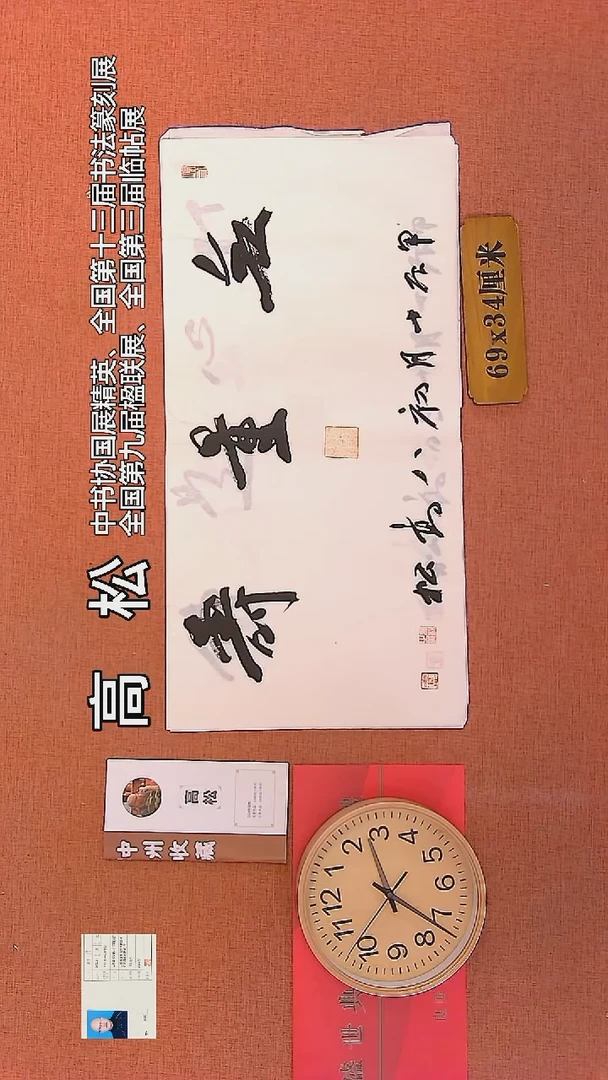 高 松
中书协国展精英、全国第十三届书法篆刻展
全国第九届楹联展、全国第三届临帖展
无量寿
甲辰十月初八高松
69x34厘米
高松
中州收藏
盛世典
12
1
2
3
4
5
6
7
8
9
10
11